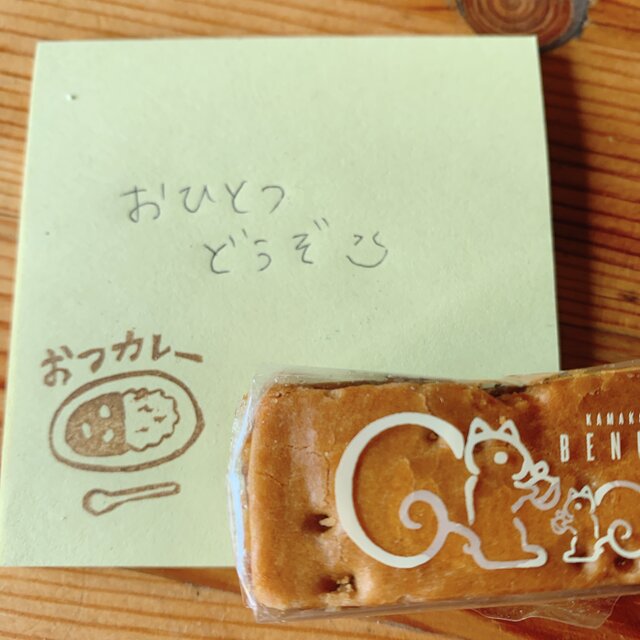 おひとつ
どうぞ
おつカレー
KAMAK
BEN